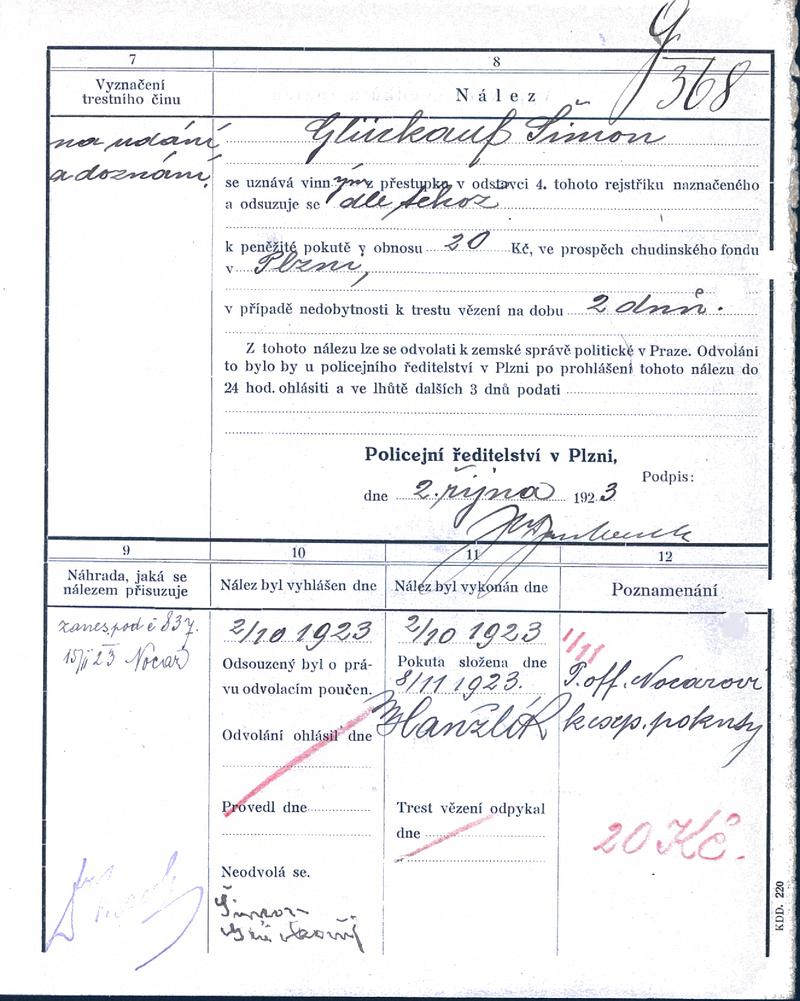 368
7
8
Vyznačení
trestního činu
Nález
na udání
a doznání.
Glückauf Šimon
se uznává vinným z přestupku v odstavci 4. tohoto rejstříku naznačeného
a odsuzuje se dle tehož
k peněžité pokutě v obnosu 20 Kč, ve prospěch chudinského fondu
v Plzni,
v případě nedobytnosti k trestu vězení na dobu 2 dnů.
Z tohoto nálezu lze se odvolati k zemské správě politické v Praze. Odvolání
to bylo by u policejního ředitelství v Plzni po prohlášení tohoto nálezu do
24 hod. ohlásiti a ve lhůtě dalších 3 dnů podati
Policejní ředitelství v Plzni,
Podpis:
dne 2. října 1923
9
10
11
12
Náhrada, jaká se
nálezem přisuzuje
Nález byl vyhlášen dne
Nález byl vykonán dne
Poznamenání
zanes. pod č 837.
Nocar
2/10 1923
Odsouzený byl o prá-
vu odvolacím poučen.
Odvolání ohlásil dne
Provedl dne
Neodvolá se.
Šimon
2/10 1923
Pokuta složena dne
8/11 1923.
Hanzlík
Trest vězení odpykal
dne
1/11
P. off. Nocarovi
k exp. pokuty
20 Kč.
KDD. 220